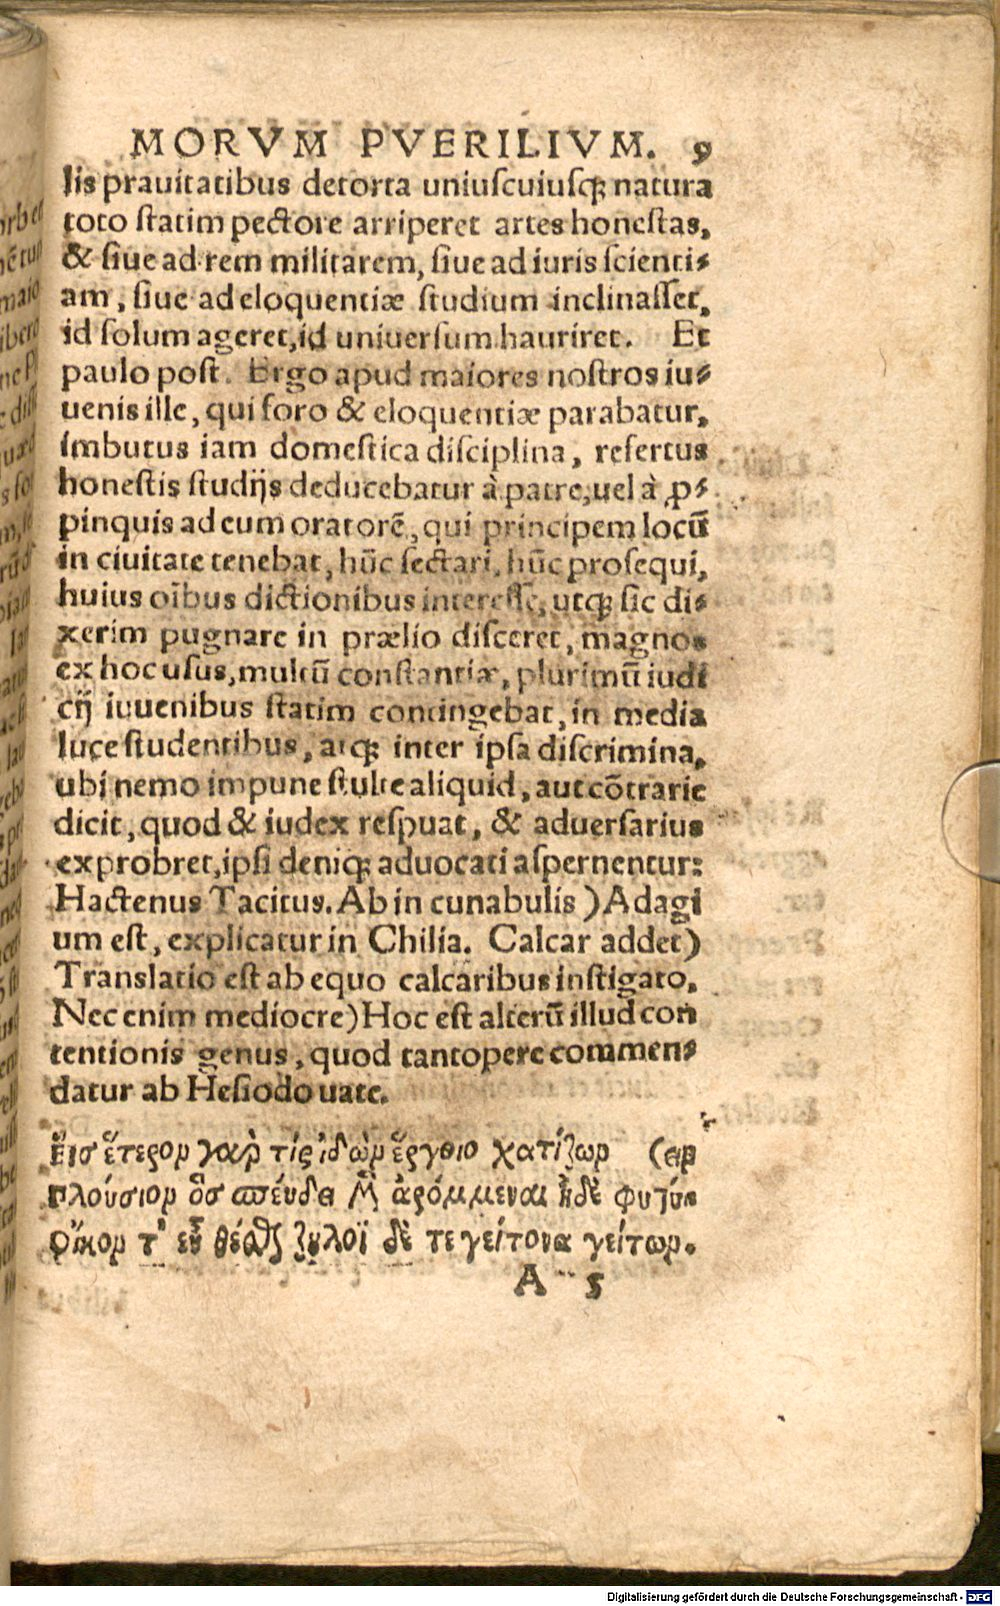 MORVM PVERILIVM. 9
lis prauitatibus detorta uniuſcuiuſq; natura
toto ſtatim pectore arriperet artes honeſtas,
& ſiue ad rem militarem, ſiue ad iuris ſcienti⸗
am, ſiue ad eloquentiæ ſtudium inclinaſſet,
id ſolum ageret, id uniuerſum hauriret. Et
paulo poſt. Ergo apud maiores noſtros iu⸗
uenis ille, qui foro & eloquentiæ parabatur,
imbutus iam domeſtica diſciplina, refertus
honeſtis ſtudijs deducebatur à patre, uel à ꝓ⸗
pinquis ad eum oratorē, qui principem locū
in ciuitate tenebat, hūc ſectari, hūc proſequi,
huius oībus dictionibus intereſſe, utq; ſic di⸗
xerim pugnare in prælio diſceret, magnos
ex hoc uſus, multū conſtantiæ, plurimū iudi
cij iuuenibus ſtatim contingebat, in media
luce ſtudentibus, atq; inter ipſa diſcrimina,
ubi nemo impune ſtulte aliquid, aut cōtrarie
dicit, quod & iudex reſpuat, & aduerſarius
exprobret, ipſi deniq; aduocati aſpernentur:
Hactenus Tacitus. Ab in cunabulis ) Adagi
um eſt, explicatur in Chilia. Calcar addet)
Translatio eſt ab equo calcaribus inſtigato.
Nec enim mediocre) Hoc eſt alterū illud con
tentionis genus, quod tantopere commen⸗
datur ab Heſiodo uate.
Εἴισ ἕτερον γαρ̀ τίς ἰδὼν ἔργοιο χατίζων (ειν
πλούσιον ὃσ σπέυδει μὲν ἀρόμμεναι ἠδὲ φυτεύ⸗
οἶκον τ' εὖ θέσθαι ζηλοῖ δὲ τε γείτονα γείτων.
A 5
Digitalisierung gefördert durch die Deutsche Forschungsgemeinschaft - DFG